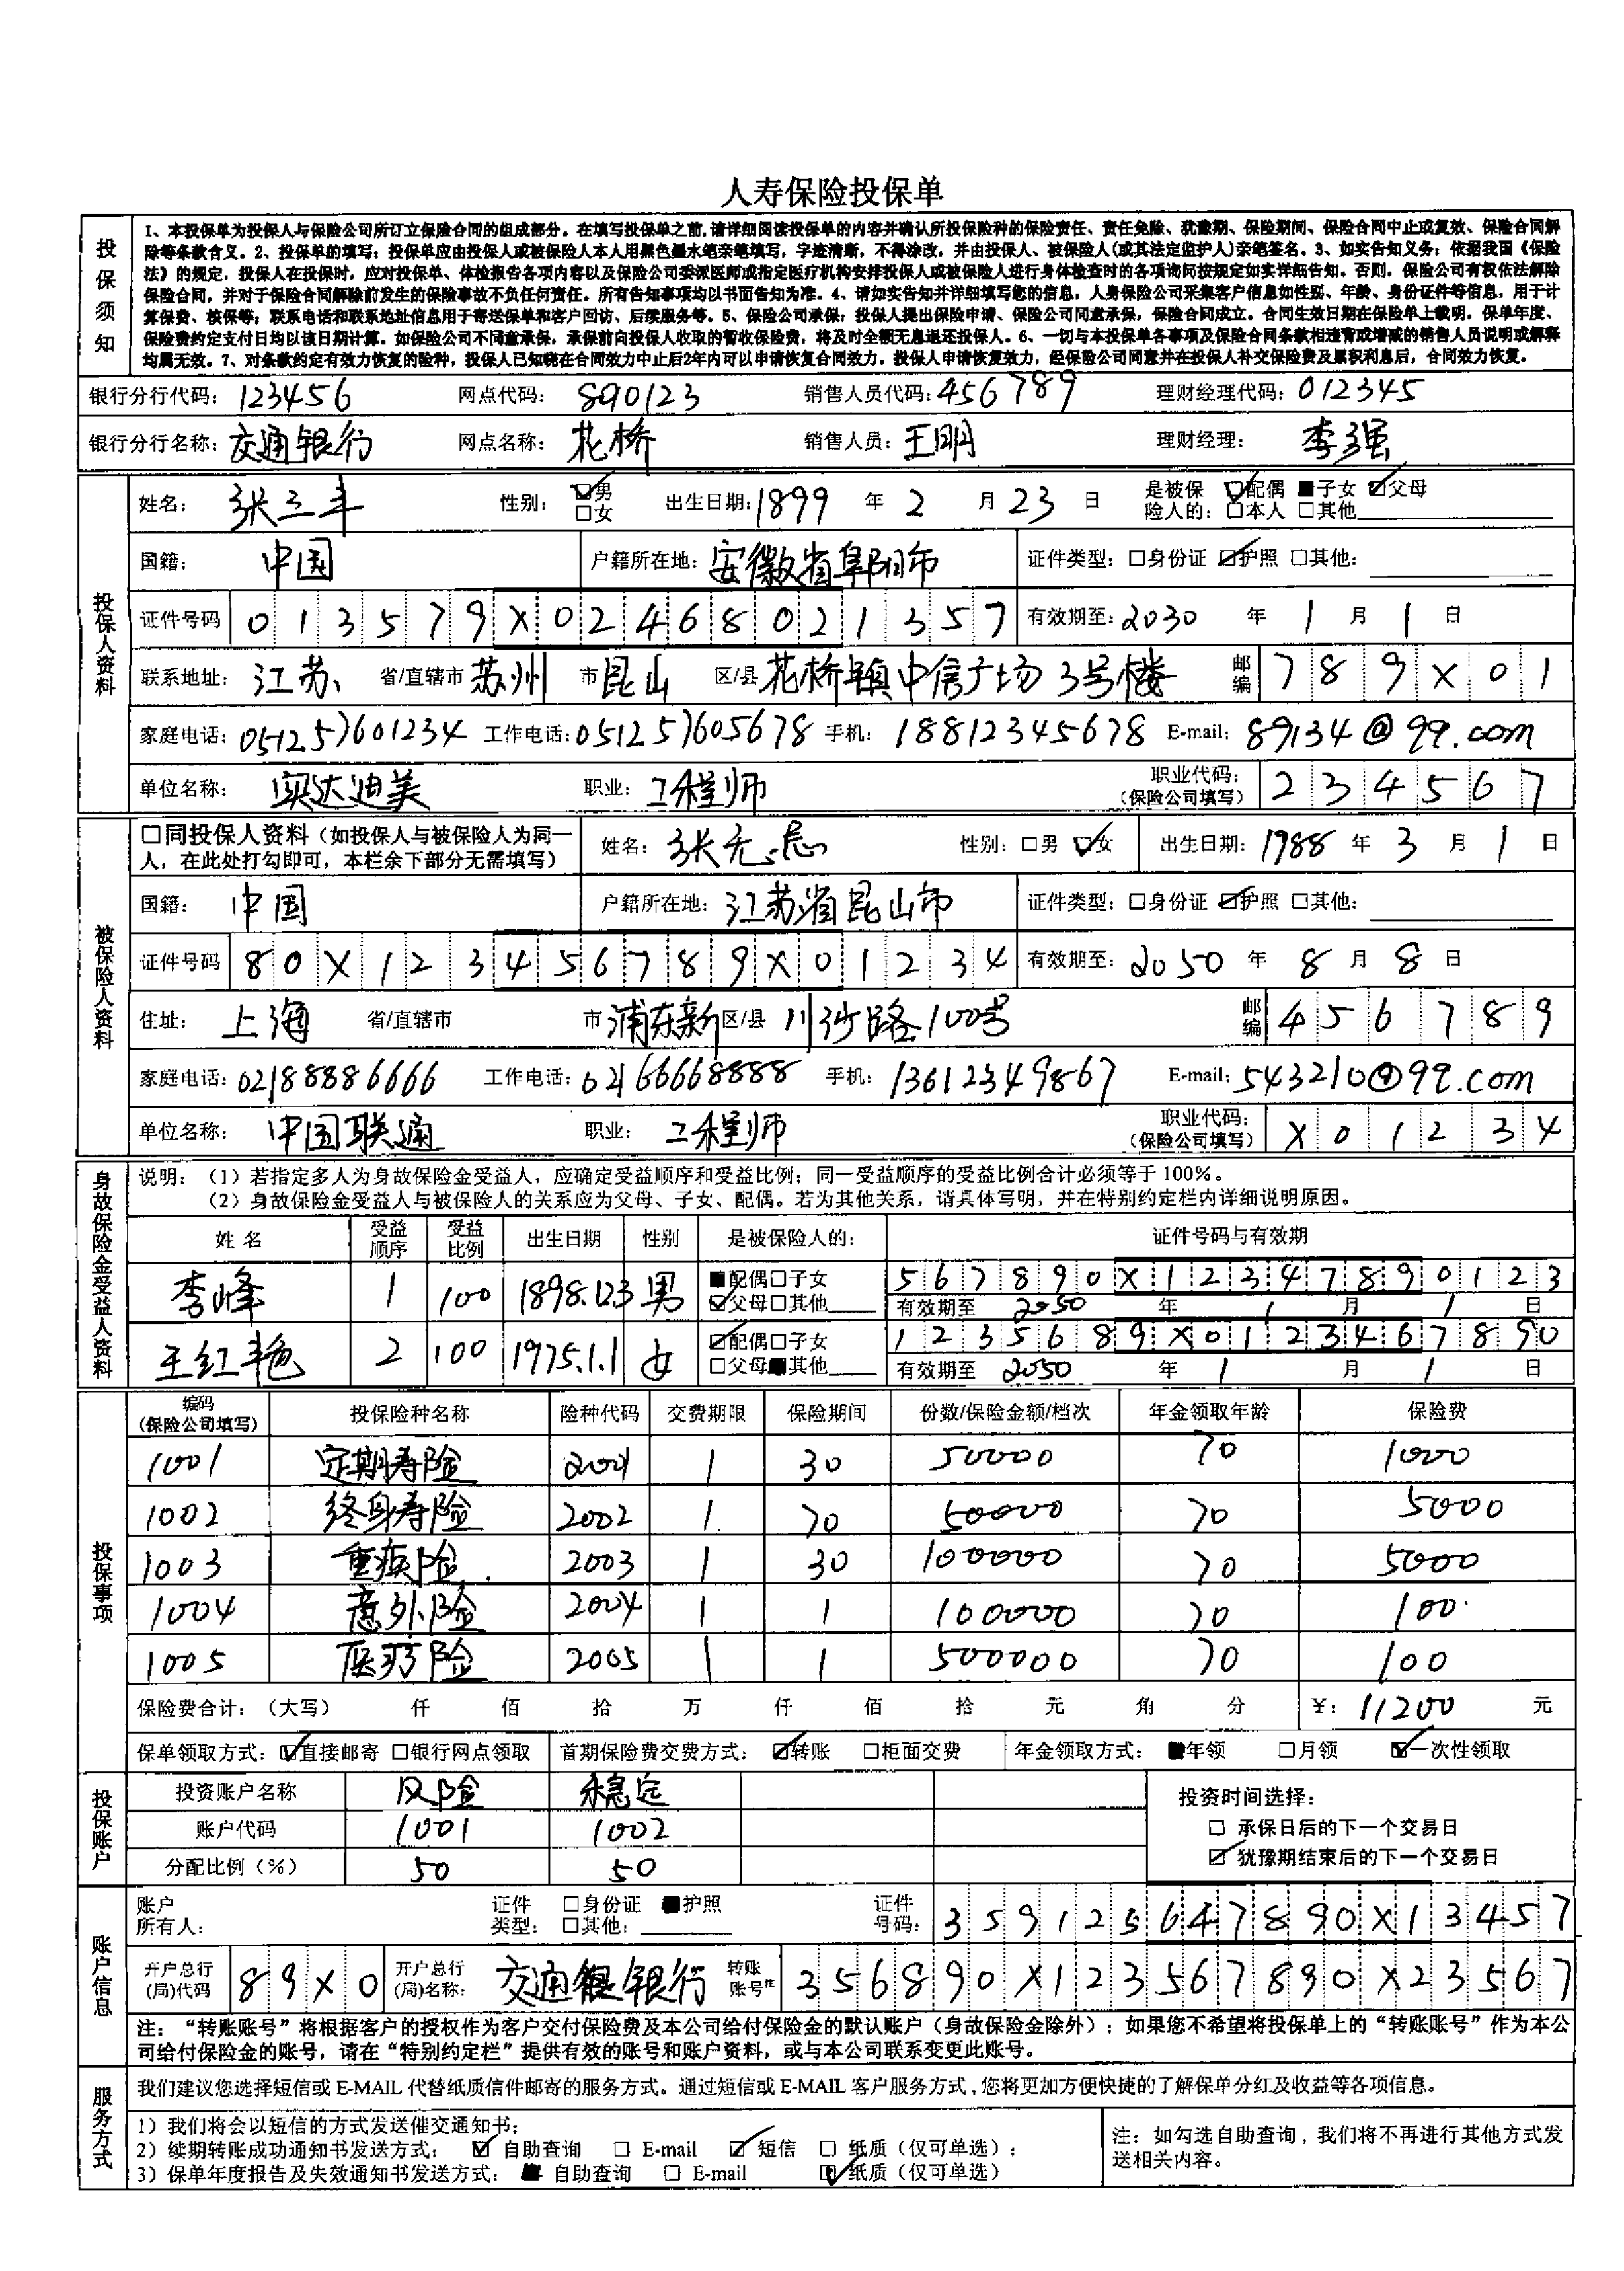 人寿保险投保单
投保须知
1、本投保单为投保人与保险公司所订立保险合同的组成部分。在填写投保单之前,请详细阅读投保单的内容并确认所投保险种的保险责任、责任免除、犹豫期、保险期间、保险合同中止或复效、保险合同解
除等条款含义。2、投保单的填写：投保单应由投保人或被保险人本人用黑色墨水笔亲笔填写，字迹清晰，不得涂改，并由投保人、被保险人(或其法定监护人)亲笔签名。3、如实告知义务：依据我国《保险
法》的规定，投保人在投保时，应对投保单、体检报告各项内容以及保险公司委派医师或指定医疗机构安排投保人或被保险人进行身体检查时的各项询问按规定如实详细告知。否则，保险公司有权依法解除
保险合同，并对于保险合同解除前发生的保险事故不负任何责任。所有告知事项均以书面告知为准。4、请如实告知并详细填写您的信息，人身保险公司采集客户信息如性别、年龄、身份证件等信息，用于计
算保费、核保等；联系电话和联系地址信息用于寄送保单和客户回访、后续服务等。5、保险公司承保：投保人提出保险申请、保险公司同意承保，保险合同成立。合同生效日期在保险单上载明，保单年度、
保险费约定支付日均以该日期计算。如保险公司不同意承保，承保前向投保人收取的暂收保险费，将及时全额无息退还投保人。6、一切与本投保单各事项及保险合同条款相违背或增减的销售人员说明或解释
均属无效。7、对条款约定有效力恢复的险种，投保人已知晓在合同效力中止后2年内可以申请恢复合同效力。投保人申请恢复效力，经保险公司同意并在投保人补交保险费及累积利息后，合同效力恢复。
银行分行代码：123456 网点代码：890123 销售人员代码：456789 理财经理代码：012345
银行分行名称：交通银行 网点名称：花桥 销售人员：王明 理财经理：李强
投保人资料
姓名：张三丰 性别：☑男 □女 出生日期：1899 年 2 月 23 日 是被保险人的：☑配偶 ■子女 ☑父母 □本人 □其他
国籍：中国 户籍所在地：安徽省阜阳市 证件类型：□身份证 ☑护照 □其他：
证件号码 013579X02468021357 有效期至：2030 年 1 月 1 日
联系地址：江苏 省/直辖市 苏州 市 昆山 区/县 花桥镇中信广场3号楼 邮编 789X01
家庭电话：051257601234 工作电话：051257605678 手机：18812345678 E-mail：89134@qq.com
单位名称：实达迪美 职业：工程师 职业代码：（保险公司填写） 234567
被保险人资料
□同投保人资料（如投保人与被保险人为同一人，在此处打勾即可，本栏余下部分无需填写） 姓名：张无忌 性别：□男 ☑女 出生日期：1988 年 3 月 1 日
国籍：中国 户籍所在地：江苏省昆山市 证件类型：□身份证 ☑护照 □其他：
证件号码 80X123456789X01234 有效期至：2050 年 8 月 8 日
住址：上海 省/直辖市 市 浦东新 区/县 川沙路100号 邮编 456789
家庭电话：02188886666 工作电话：02166668888 手机：13612349867 E-mail：543210@qq.com
单位名称：中国联通 职业：工程师 职业代码：（保险公司填写） X01234
身故保险金受益人资料
说明：（1）若指定多人为身故保险金受益人，应确定受益顺序和受益比例；同一受益顺序的受益比例合计必须等于100%。
（2）身故保险金受益人与被保险人的关系应为父母、子女、配偶。若为其他关系，请具体写明，并在特别约定栏内详细说明原因。
姓名 受益顺序 受益比例 出生日期 性别 是被保险人的： 证件号码与有效期
李峰 1 100 1898.12.3 男 ■配偶□子女 ☑父母□其他 567890X12347890123
有效期至 2050 年 1 月 1 日
王红艳 2 100 1975.1.1 女 ☑配偶□子女 □父母■其他 1235689X0123467890
有效期至 2050 年 1 月 1 日
投保事项
编码（保险公司填写） 投保险种名称 险种代码 交费期限 保险期间 份数/保险金额/档次 年金领取年龄 保险费
1001 定期寿险 2001 1 30 50000 70 1000
1002 终身寿险 2002 1 70 50000 70 5000
1003 重疾险 2003 1 30 100000 70 5000
1004 意外险 2004 1 1 100000 70 100
1005 医疗险 2005 1 1 500000 70 100
保险费合计：（大写） 仟 佰 拾 万 仟 佰 拾 元 角 分 ￥：11200 元
保单领取方式：☑直接邮寄 □银行网点领取 首期保险费交费方式：☑转账 □柜面交费 年金领取方式：■年领 □月领 ☑一次性领取
投保账户
投资账户名称 风险 稳定 投资时间选择：
账户代码 1001 1002 □ 承保日后的下一个交易日
分配比例（%） 50 50 ☑ 犹豫期结束后的下一个交易日
账户信息
账户所有人： 证件类型：□身份证 ■护照 □其他： 证件号码：359125647890X13457
开户总行(局)代码 89X0 开户总行(局)名称：交通银行 转账账号 356890X123567890X23567
注：“转账账号”将根据客户的授权作为客户交付保险费及本公司给付保险金的默认账户（身故保险金除外）；如果您不希望将投保单上的“转账账号”作为本公
司给付保险金的账号，请在“特别约定栏”提供有效的账号和账户资料，或与本公司联系变更此账号。
服务方式
我们建议您选择短信或 E-MAIL 代替纸质信件邮寄的服务方式。通过短信或 E-MAIL 客户服务方式，您将更加方便快捷的了解保单分红及收益等各项信息。
1）我们将会以短信的方式发送催交通知书；
2）续期转账成功通知书发送方式：☑ 自助查询 □ E-mail ☑ 短信 □ 纸质（仅可单选）；
3）保单年度报告及失效通知书发送方式：■ 自助查询 □ E-mail ☑ 纸质（仅可单选）
注：如勾选自助查询，我们将不再进行其他方式发
送相关内容。